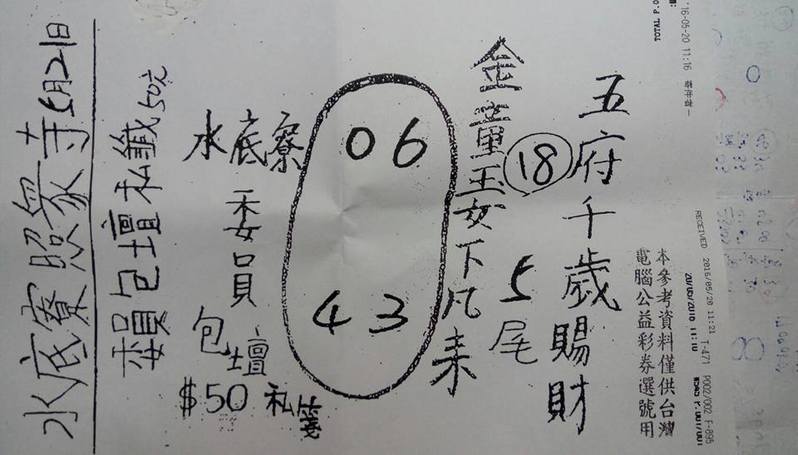 五府千歲賜財
18
5尾
金童玉女下凡來
06
43
水底寮
委員
包壇
$50 私籤
賴包壇私籤50元
水底寮照眾寺5月21日
本參考資料僅供台灣
電腦公益彩券選號用
RECEIVED 2016/05/20 11:21 T-471 P002/002 F-895
20/05/2016 11:10
16-05-20 11:16
TOTAL P.0